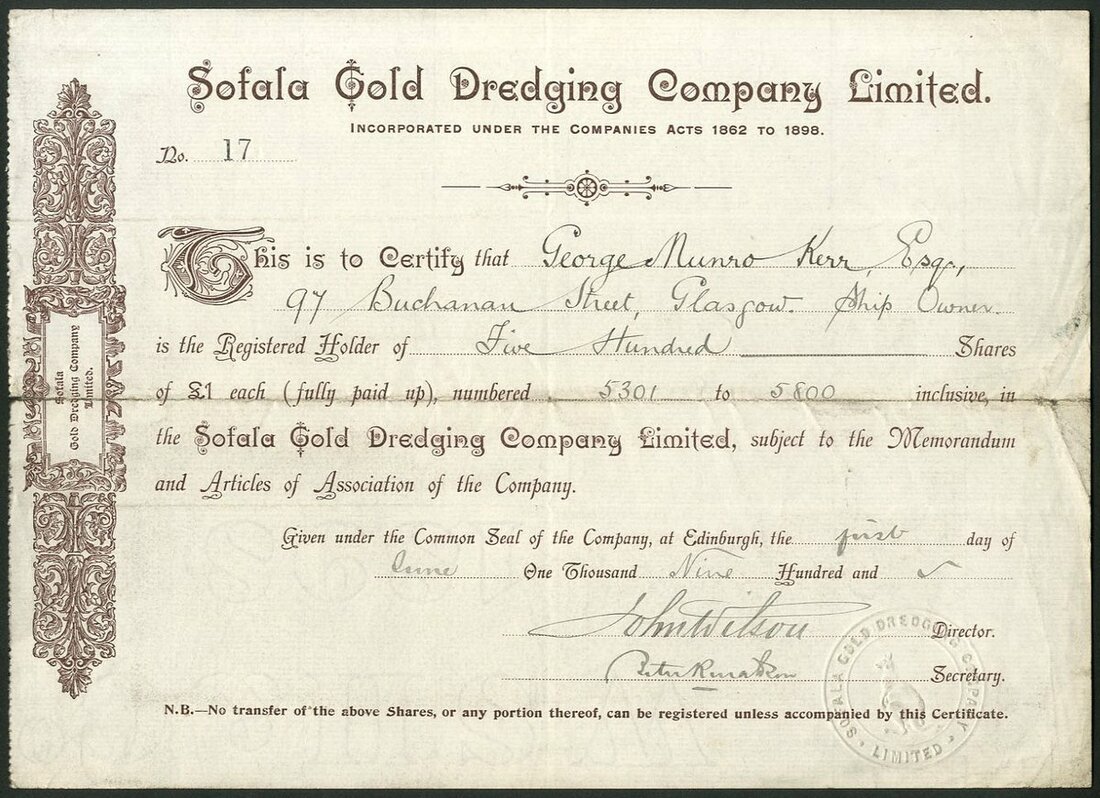 Sofala Gold Dredging Company Limited.
INCORPORATED UNDER THE COMPANIES ACTS 1862 TO 1898.
No. 17
This is to Certify that George Munro Kerr, Esq.,
97 Buchanan Street, Glasgow. Ship Owner.
is the Registered Holder of Five Hundred Shares
of £1 each (fully paid up), numbered 5301 to 5800 inclusive, in
the Sofala Gold Dredging Company Limited, subject to the Memorandum
and Articles of Association of the Company.
Given under the Common Seal of the Company, at Edinburgh, the first day of
June One Thousand Nine Hundred and
John Wilson Director.
Peter Secretary.
N.B.—No transfer of the above Shares, or any portion thereof, can be registered unless accompanied by this Certificate.
Sofala
Gold Dredging Company
Limited.
SOFALA GOLD DREDGING COMPANY
LIMITED